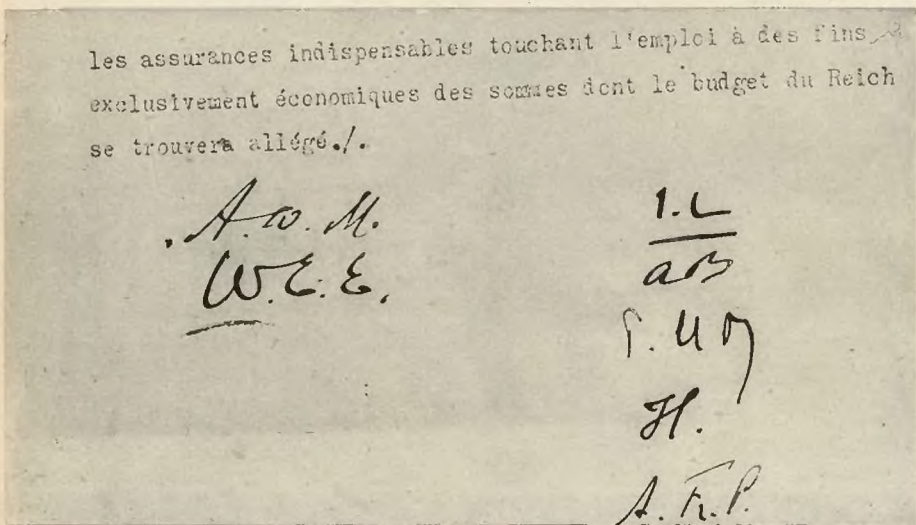 les assurances indispensables touchant l'emploi à des fins
exclusivement économiques des sommes dont le budget du Reich
se trouvera allégé./.
A. W. M.
W. E. E.
P. L
aB
H.
A. Fr. P.